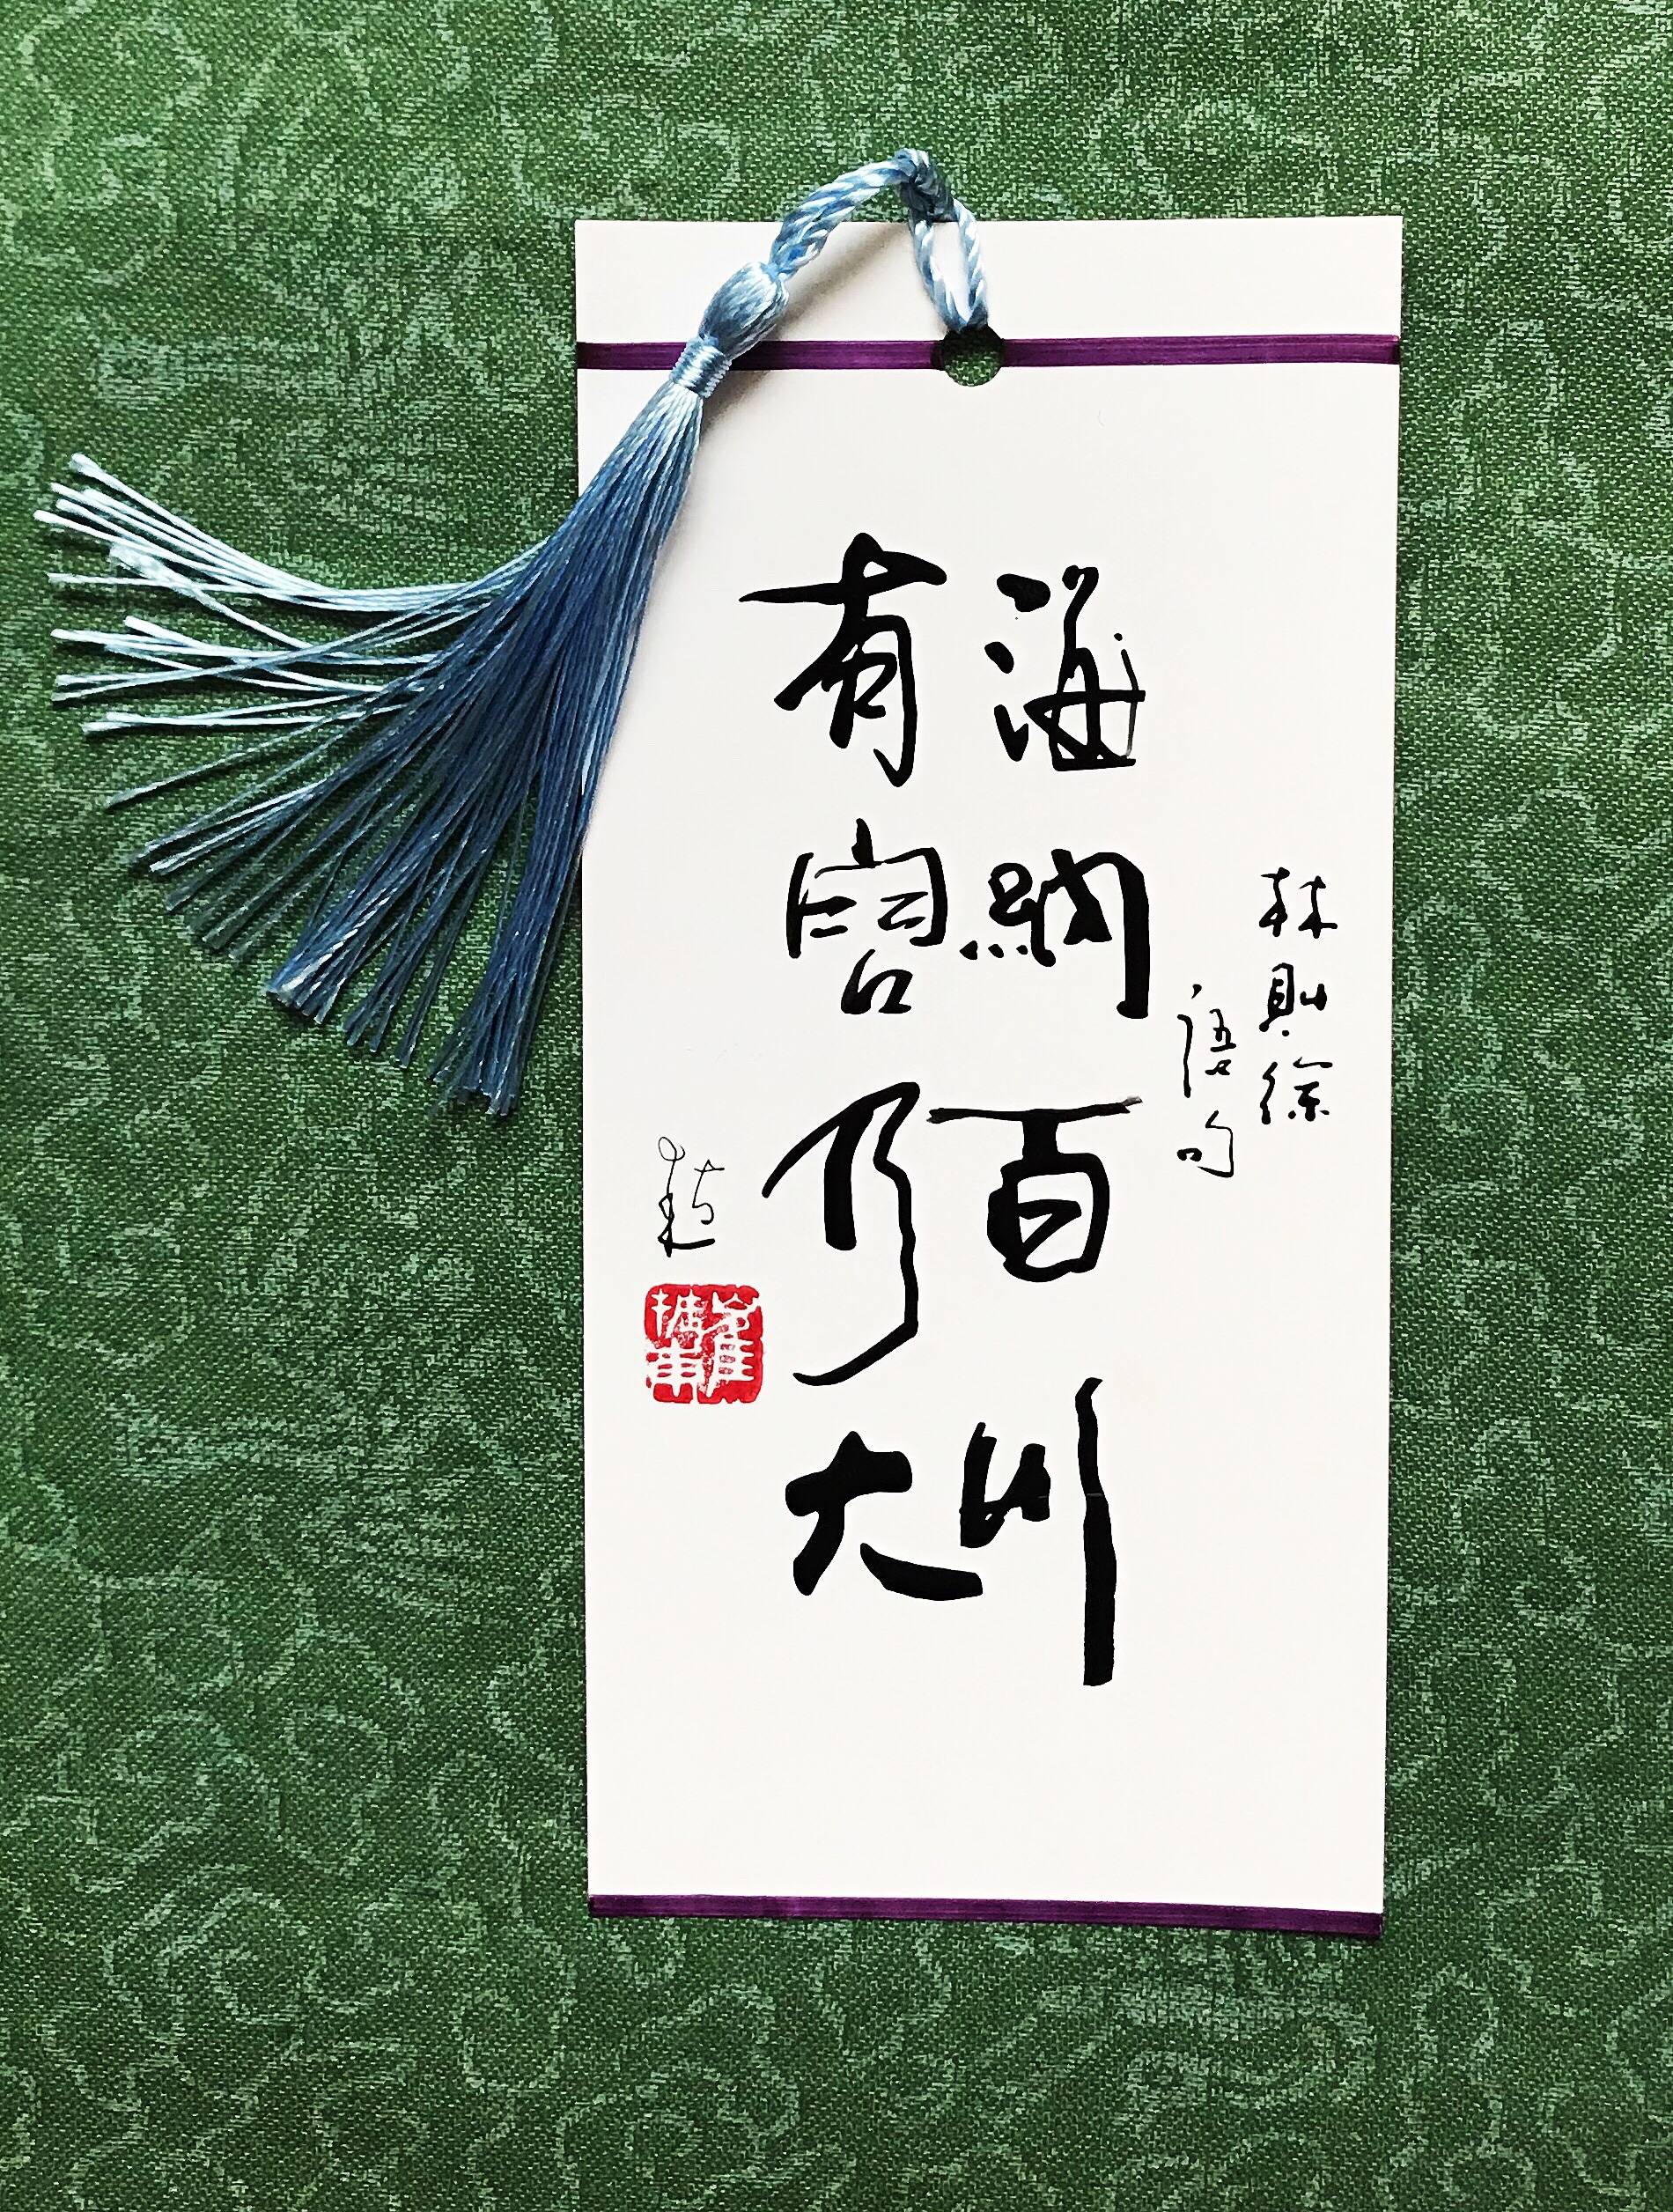 林則徐
语句
海納百川
有容乃大